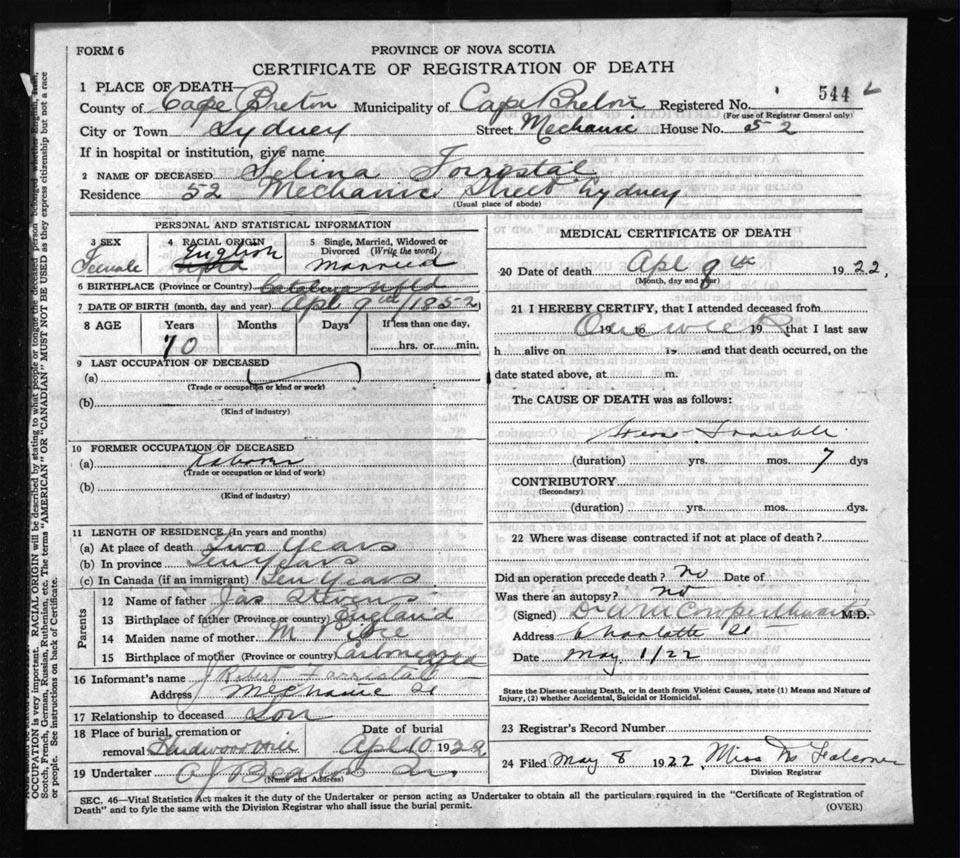 FORM 6
PROVINCE OF NOVA SCOTIA
CERTIFICATE OF REGISTRATION OF DEATH
1 PLACE OF DEATH
County of Cape Breton Municipality of Cape Breton Registered No. 544
(For use of Registrar General only)
City or Town Sydney Street Mechanic House No. 52
If in hospital or institution, give name
2 NAME OF DECEASED Selina Forrestal
Residence 52 Mechanic Street Sydney
(Usual place of abode)
PERSONAL AND STATISTICAL INFORMATION
3 SEX
Female
4 RACIAL ORIGIN
English
5 Single, Married, Widowed or Divorced (Write the word)
Married
6 BIRTHPLACE (Province or Country) Catalina Nfld
7 DATE OF BIRTH (month, day and year) Apl 9th 1852
8 AGE
Years
70
Months
Days
If less than one day,
hrs. or min.
9 LAST OCCUPATION OF DECEASED
(a)
(Trade or occupation or kind of work)
(b)
(Kind of industry)
10 FORMER OCCUPATION OF DECEASED
(a)
(Trade or occupation or kind of work)
(b)
(Kind of industry)
11 LENGTH OF RESIDENCE (In years and months)
(a) At place of death Two Years
(b) In province Ten years
(c) In Canada (if an immigrant) Ten Years
Parents
12 Name of father Jas Stevens
13 Birthplace of father (Province or country) England
14 Maiden name of mother M
15 Birthplace of mother (Province or country) Carbonear Nfld
16 Informant's name Forrestal
Address Mechanic St
17 Relationship to deceased Son
18 Place of burial, cremation or removal Hardwood Hill
Date of burial
Apl 10 1922
19 Undertaker A J Beaton
(Name and Address)
MEDICAL CERTIFICATE OF DEATH
20 Date of death Apl 9th 1922,
(Month, day and year)
21 I HEREBY CERTIFY, that I attended deceased from
One week 19 to 19 that I last saw
h alive on 19 and that death occurred, on the
date stated above, at m.
The CAUSE OF DEATH was as follows:
Trouble
(duration) yrs. mos. 7 dys
CONTRIBUTORY
(Secondary)
(duration) yrs. mos. dys.
22 Where was disease contracted if not at place of death?
Did an operation precede death? no Date of
Was there an autopsy? no
(Signed) Dr W M Cowperthwaite M.D.
Address Charlotte St
Date May 1/22
State the Disease causing Death, or in death from Violent Causes, state (1) Means and Nature of Injury, (2) whether Accidental, Suicidal or Homicidal.
23 Registrar's Record Number
24 Filed May 8 1922 Miss M Falconer
Division Registrar
SEC. 46—Vital Statistics Act makes it the duty of the Undertaker or person acting as Undertaker to obtain all the particulars required in the "Certificate of Registration of
Death" and to fyle the same with the Division Registrar who shall issue the burial permit.
(OVER)
OCCUPATION is very important. RACIAL ORIGIN will be described by stating to what people or tongue the deceased person belonged, whether English, Irish,
Scotch, French, German, Russian, Ruthenian, etc. The terms "AMERICAN" OR "CANADIAN" MUST NOT BE USED as they express citizenship but not a race
or people. See instructions on back of Certificate.